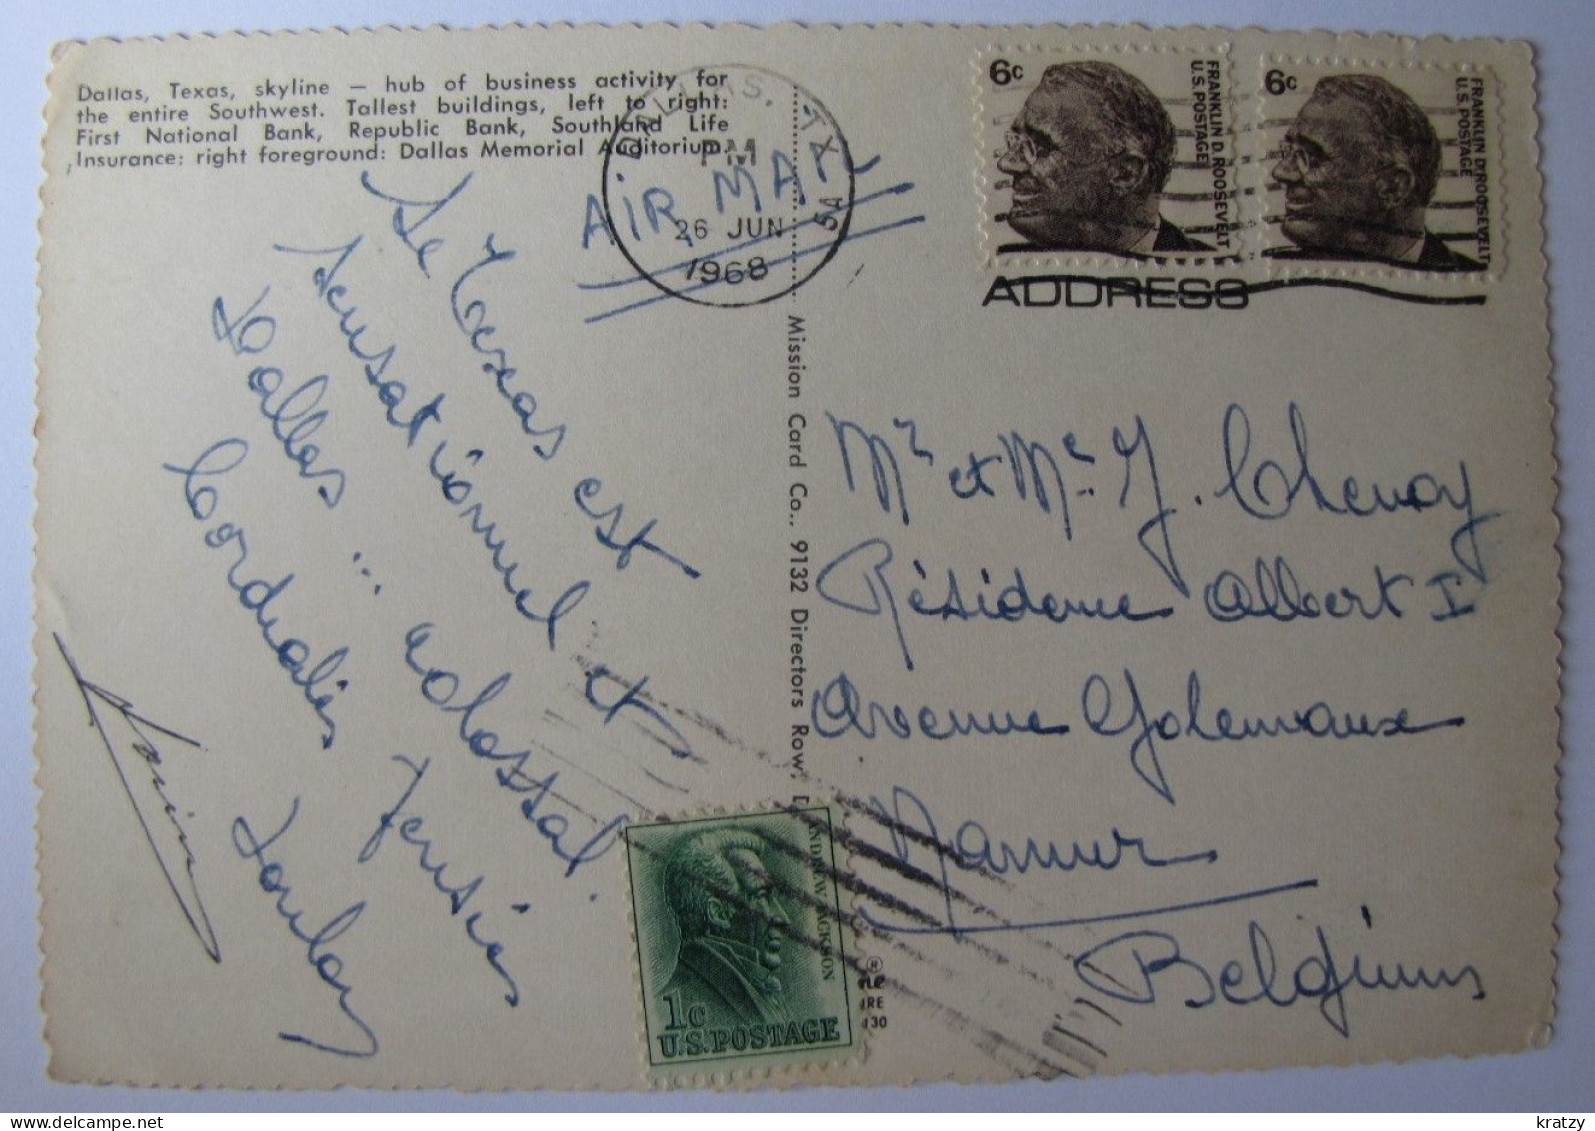 Dallas, Texas, skyline — hub of business activity for
the entire Southwest. Tallest buildings, left to right:
First National Bank, Republic Bank, Southland Life
Insurance; right foreground: Dallas Memorial Auditorium.
AIR MAIL
DALLAS, TX
PM
26 JUN
1968
5A
Le Texas est
sensationnel et
Dallas ... colossal.
Cordiales pensées
Mission Card Co., 9132 Directors Row, D
6c
FRANKLIN D. ROOSEVELT
U.S. POSTAGE
6c
FRANKLIN D. ROOSEVELT
U.S. POSTAGE
ADDRESS
Mr et Me. J. Chenoy
Résidence Albert I
Avenue Golenvaux
Namur
Belgium
ANDREW JACKSON
1c
U.S. POSTAGE
®
URE
130
kratzy
www.delcampe.net